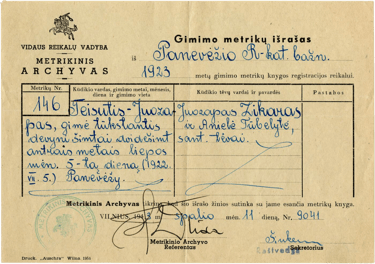 VIDAUS REIKALŲ VADYBA
METRIKINIS
ARCHYVAS
Gimimo metrikų išrašas
iš Panevėžio R-kat. bažn.
1923 metų gimimo metrikų knygos registracijos reikalui.
Metrikų Nr.
Kūdikio vardas, gimimo metai, mėnesis, diena ir gimimo vieta
Kūdikio tėvų vardai ir pavardės
Pastabos
146
Teisutis-Juoza-
pas, gimė tūkstantis
devyni šimtai dvidešimt
antrais metais liepos
mėn. 5-tą dieną (1922.
VII. 5.) Panevėžy.
Juozapas Zikaras
ir Anielė Tūbelytė,
sant. tėvai.
Metrikinis Archyvas tikrina, kad šis išrašo žinios sutinka su jame esančia metrikų knyga.
VILNIUS, spalio mėn. 11 dieną, Nr. 9041.
Metrikinio Archyvo
Referentas
Sekretorius
Druk. „Auschra“ Wilna